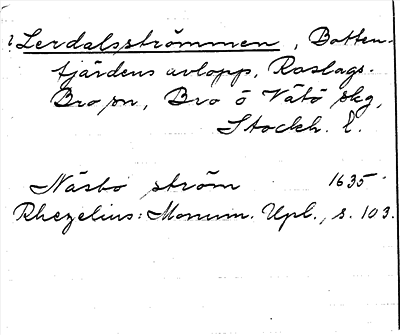 ? Lerdalsströmmen, Botten-
fjärdens avlopp, Roslags-
Bro sn, Bro o Vätö skg,
Stockh. l.
Näsbo ström 1635.
Rhezelius: Monum. Upl., s. 103.